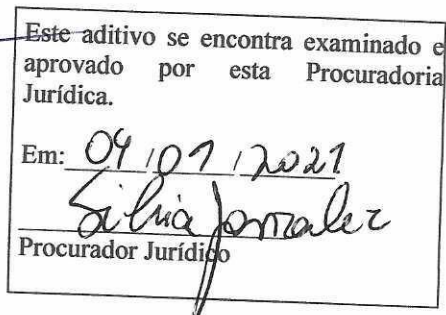 Este aditivo se encontra examinado e
aprovado por esta Procuradoria
Jurídica.
Em: 04/01/2021
Silvia Gonzalez
Procurador Jurídico